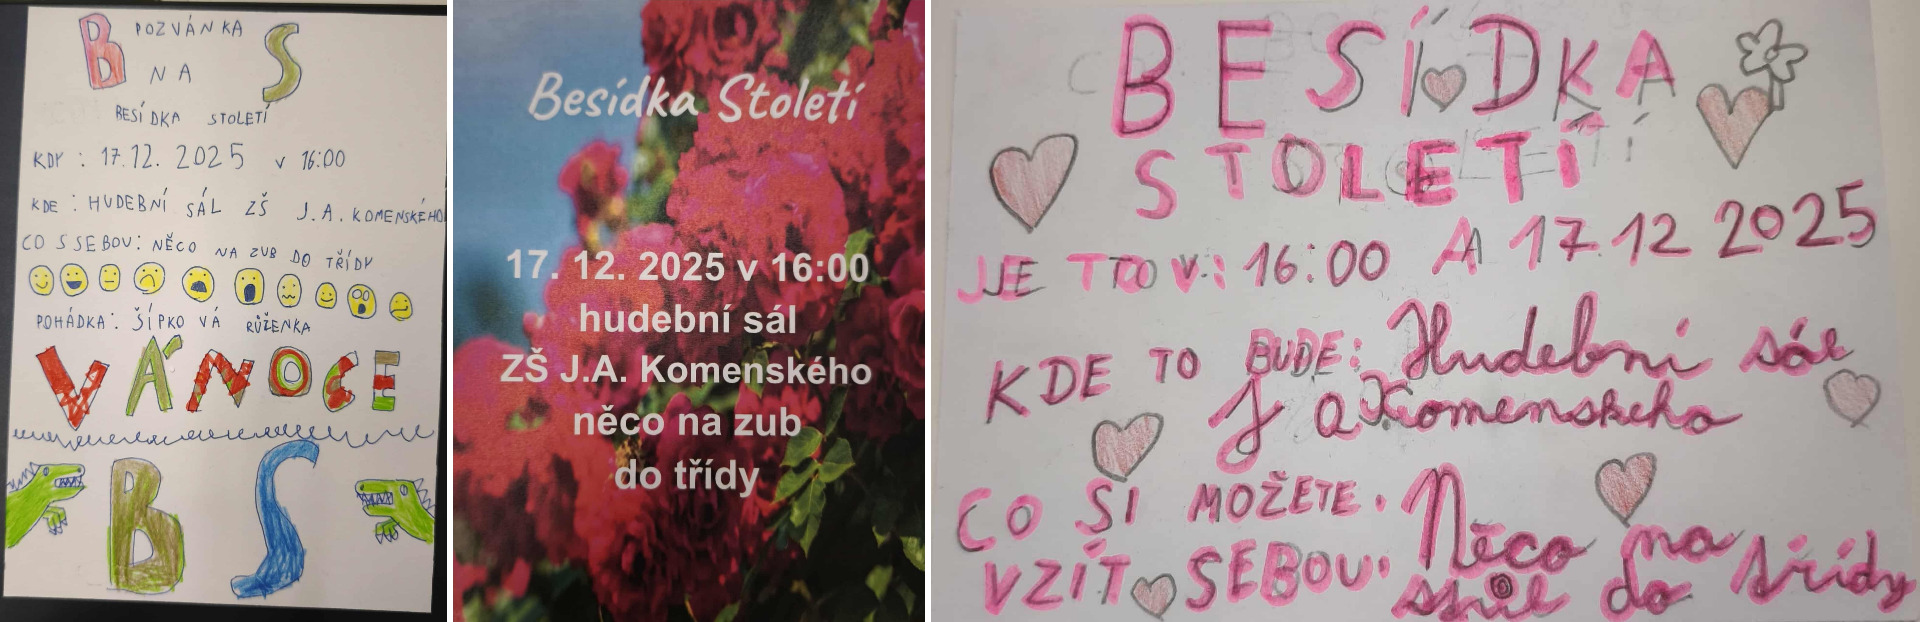 B POZVÁNKA S
NA
BESÍDKA STOLETÍ
KDY : 17.12. 2025 v 16:00
KDE : HUDEBNÍ SÁL ZŠ J.A. KOMENSKÉHO
CO S SEBOU: NĚCO NA ZUB DO TŘÍDY
POHÁDKA: ŠÍPKO VÁ RŮŽENKA
VÁNOCE
B S
Besídka Století
17. 12. 2025 v 16:00
hudební sál
ZŠ J.A. Komenského
něco na zub
do třídy
BESÍDKA
STOLETÍ
JE TTO V: 16:00 A 17.12 2025
KDE TO BUDE: Hudební sál
J a Komenskeho
CO SI MOŽETE. Něco na
VZÍT SEBOU. stůl do třídy